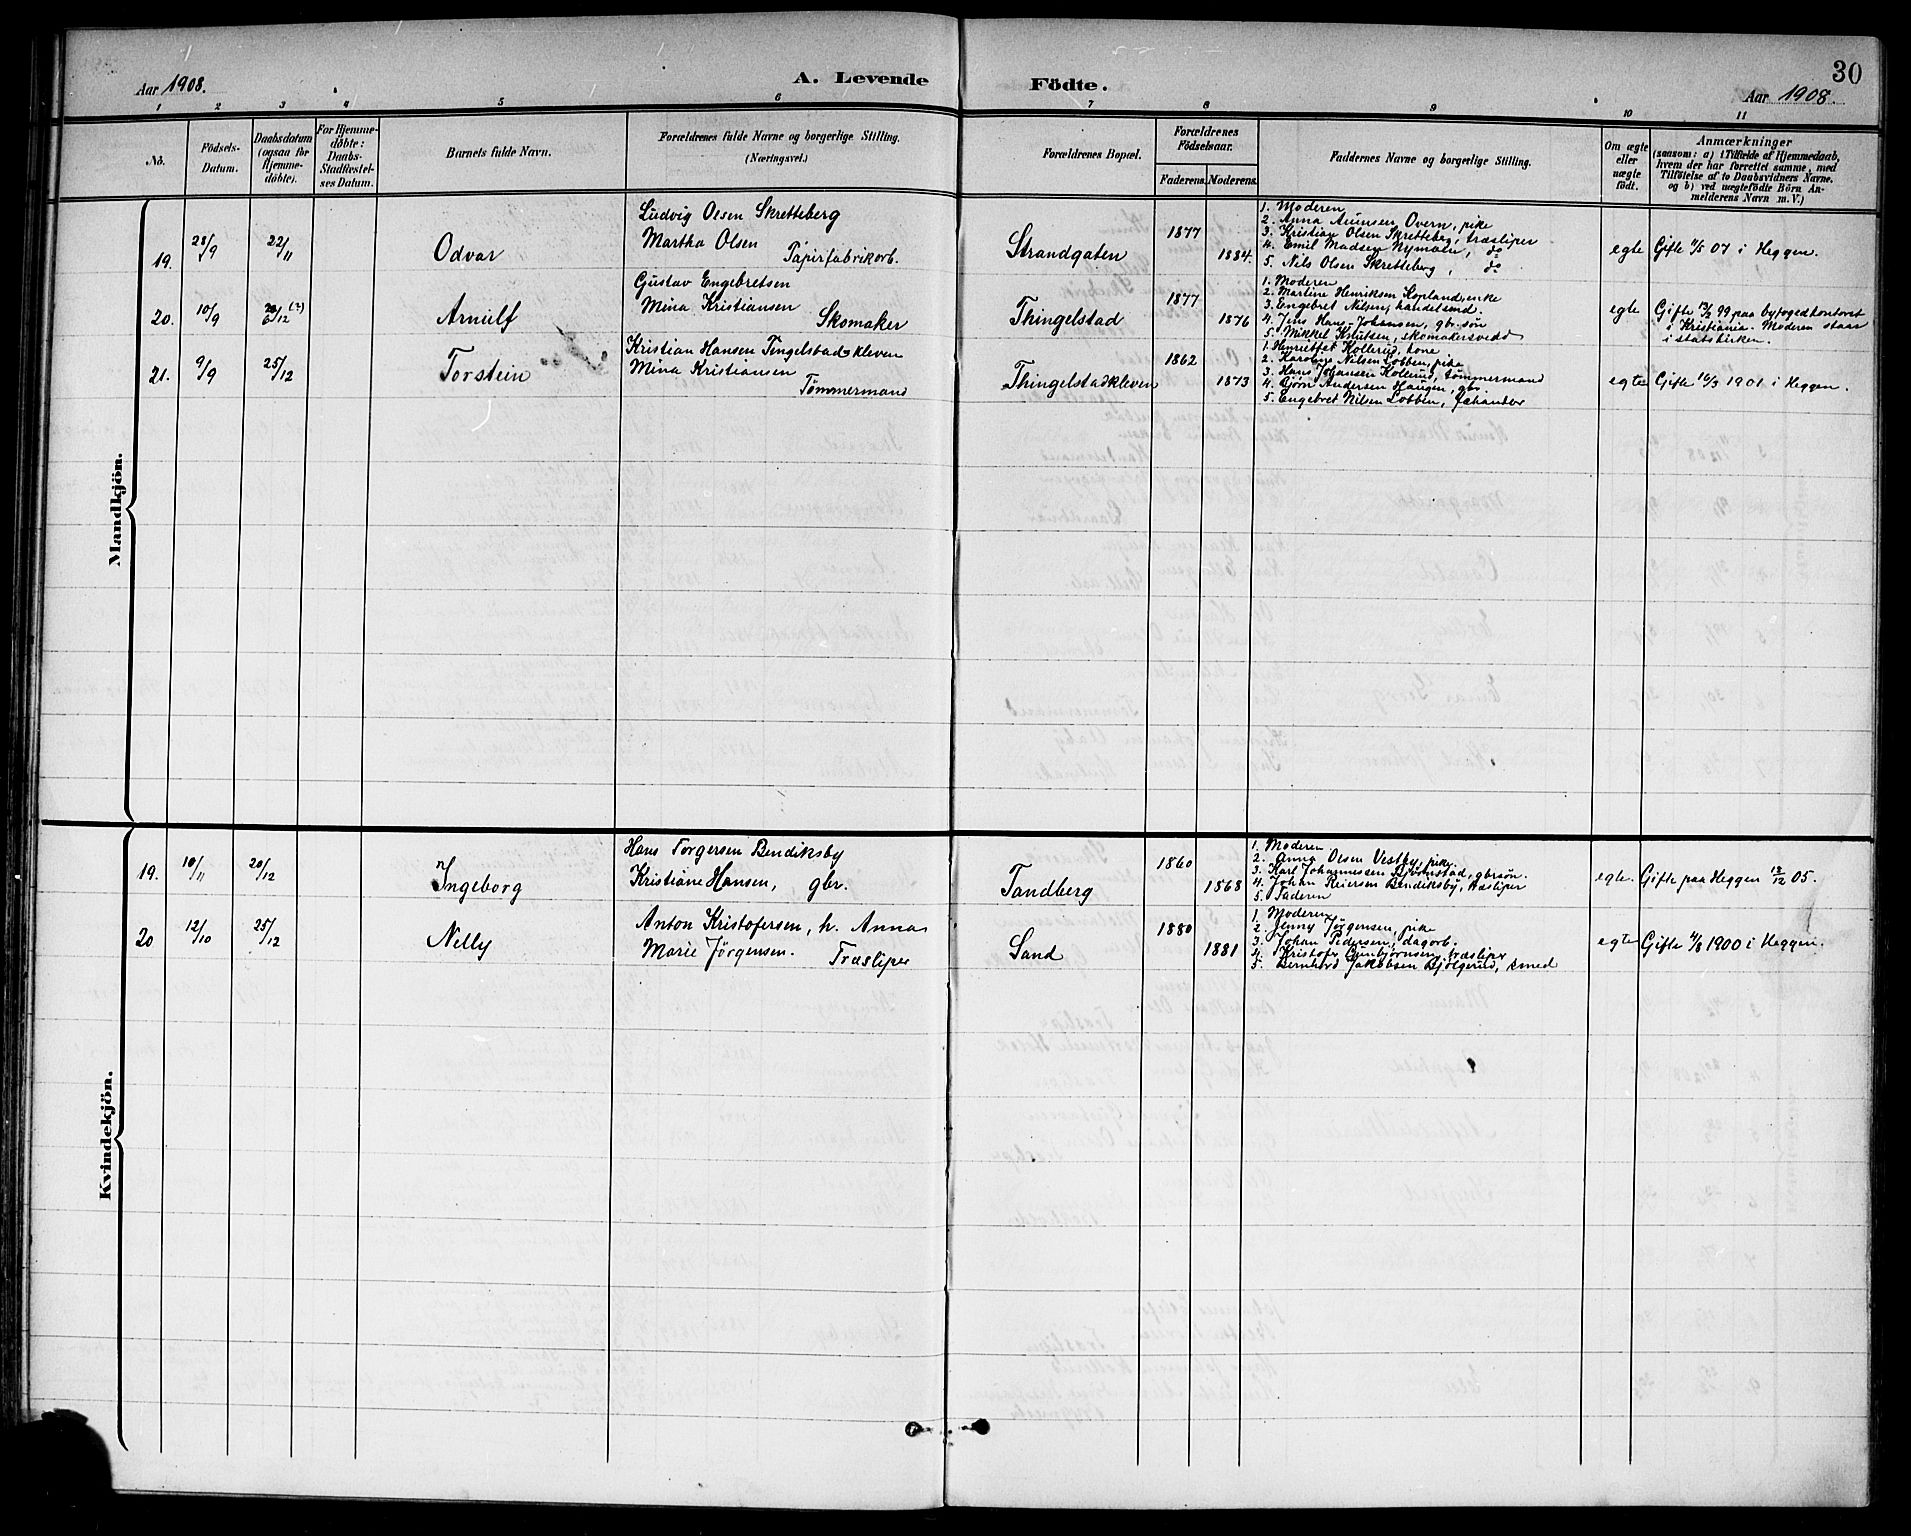 Aar 1908.
A. Levende Födte.
30
Aar 1908.
1 2 3 4 5 6 7 8 9 10 11
No.
Födsels-Datum.
Daabsdatum (ogsaa for Hjemme-döbte).
For Hjemme-döbte: Daabs-Stadfæstel-ses Datum.
Barnets fulde Navn.
Forældrenes fulde Navne og borgerlige Stilling.
(Næringsvei.)
Forældrenes Bopæl.
Forældrenes Födselsaar.
Faderens.
Moderens.
Faddernes Navne og borgerlige Stilling.
Om ægte eller uægte födt.
Anmærkninger
(saasom: a) i Tilfælde af Hjemmedaab, hvem der har forrettet samme, med Tilföielse af to Daabsvidners Navne. og b) ved uægtefödte Börn An-melderens Navn m. V.)
Mandkjön.
19.
28/9
22/11
Odvar
Ludvig Olsen Skretteberg
Martha Olsen
Papirfabrikarb.
Strandgaten
1877
1884.
1. Moderen
2. Anna Overn, pike
3. Kristian Olsen Skretteberg, træsliper
4. Emil Madsen Nymoen, do
5. Nils Olsen Skretteberg, do
egte
Gifte 07 i Heggen.
20.
10/9
(?)
Arnulf
Gustav Engebretsen
Mina Kristiansen
Skomaker
Thingelstad
1877
1876
1. Moderen
2. Martine Henriksen Kopland, enke
3. Engebret Nilsen, handelsmd.
4. Jens Hans Johansen, gbr. søn
5. Mikkel Knutsen, skomakersvend
egte
Gifte 99 paa byfogedkontoret
i Kristiania. Moderen staar
i statskirken.
21.
9/9
25/12
Torstein
Kristian Hansen Tingelstadkleven
Mina Kristiansen
Tømmermand
Thingelstadkleven
1862
1873
1. Henriette Kollerud, kone
2. Karoline Nilsen Lobben, pike
3. Hans Johansen Kollerud, tømmermand
4. Bjørn Andersen Haugen, gbr.
5. Engebret Nilsen Lobben,
egte
Gifte 16/3 1901 i Heggen.
Kvindekjön.
19.
10/11
20/12
Ingeborg
Hans Torgersen Bendiksby
Kristiane Hansen, gbr.
Tandberg
1860
1868
1. Moderen
2. Anna Olsen Vestby, pike.
3. Karl Johannessen Bjørnstad, gbrsøn.
4. Johan Reiersen Bendiksby, træsliper
5. Faderen
egte.
Gifte paa Heggen 12/12 05.
20
12/10
25/12
Nelly
Anton Kristofersen, h. Anna
Marie Jørgensen.
Træsliper
Sand
1880
1881
1. Moderen
2. Jenny Jørgensen, pike
3. Johan Pedersen, dagarb.
4. Kristofer Gunbjørnsen, træsliper
5. Bernhard Jakobsen Bjølgerud, smed
egte
Gifte 1900 i Heggen.